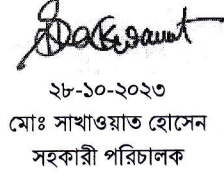 ২৮-১০-২০২৩
মোঃ সাখাওয়াত হোসেন
সহকারী পরিচালক